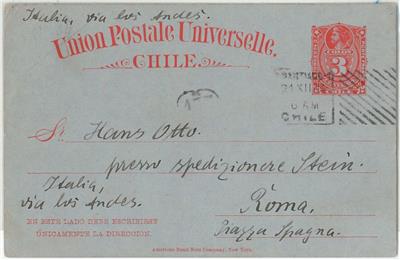 Italia, via los Andes.
Union Postale Universelle.
CHILE.
3
SANTIAGO
21 XII
6 AM
CHILE
Sr. Hans Otto.
presso spedizionere Stein.
Italia,
via los Andes.
Roma,
Piazza Spagna.
EN ESTE LADO DEBE ESCRIBIRSE
ÚNICAMENTE LA DIRECCION.
American Bank Note Company, New York.